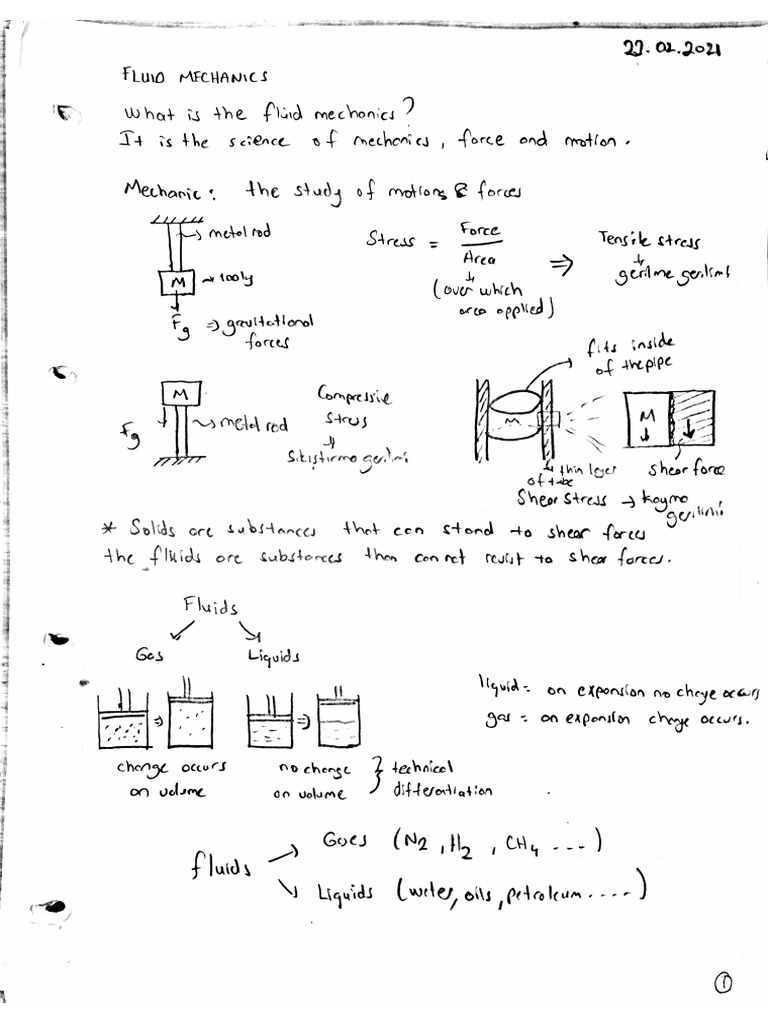 22.02.2021
FLUID MECHANICS
What is the fluid mechanics?
It is the science of mechanics, force and motion.
Mechanic: the study of motions & forces
metal rod
M
Fg ⇒ gravitational
forces
Stress = Force
Area
(over which
area applied)
⇒ Tensile stress
gerilme gerilimi
M
Fg
metal rod
Compressive
stress
Sıkıştırma gerilimi
fits inside
of the pipe
M
M
thin layer
of tube
shear force
Shear stress → kayma
gerilimi
* Solids are substances that can stand to shear forces
the fluids are substances than can not resist to shear forces.
Fluids
Gas Liquids
liquid = on expansion no change occurs
gas = on expansion change occurs.
change occurs
on volume
no change
on volume
technical
differentiation
fluids
Gases (N2, H2, CH4 ....)
Liquids (water, oils, petroleum.....)
1